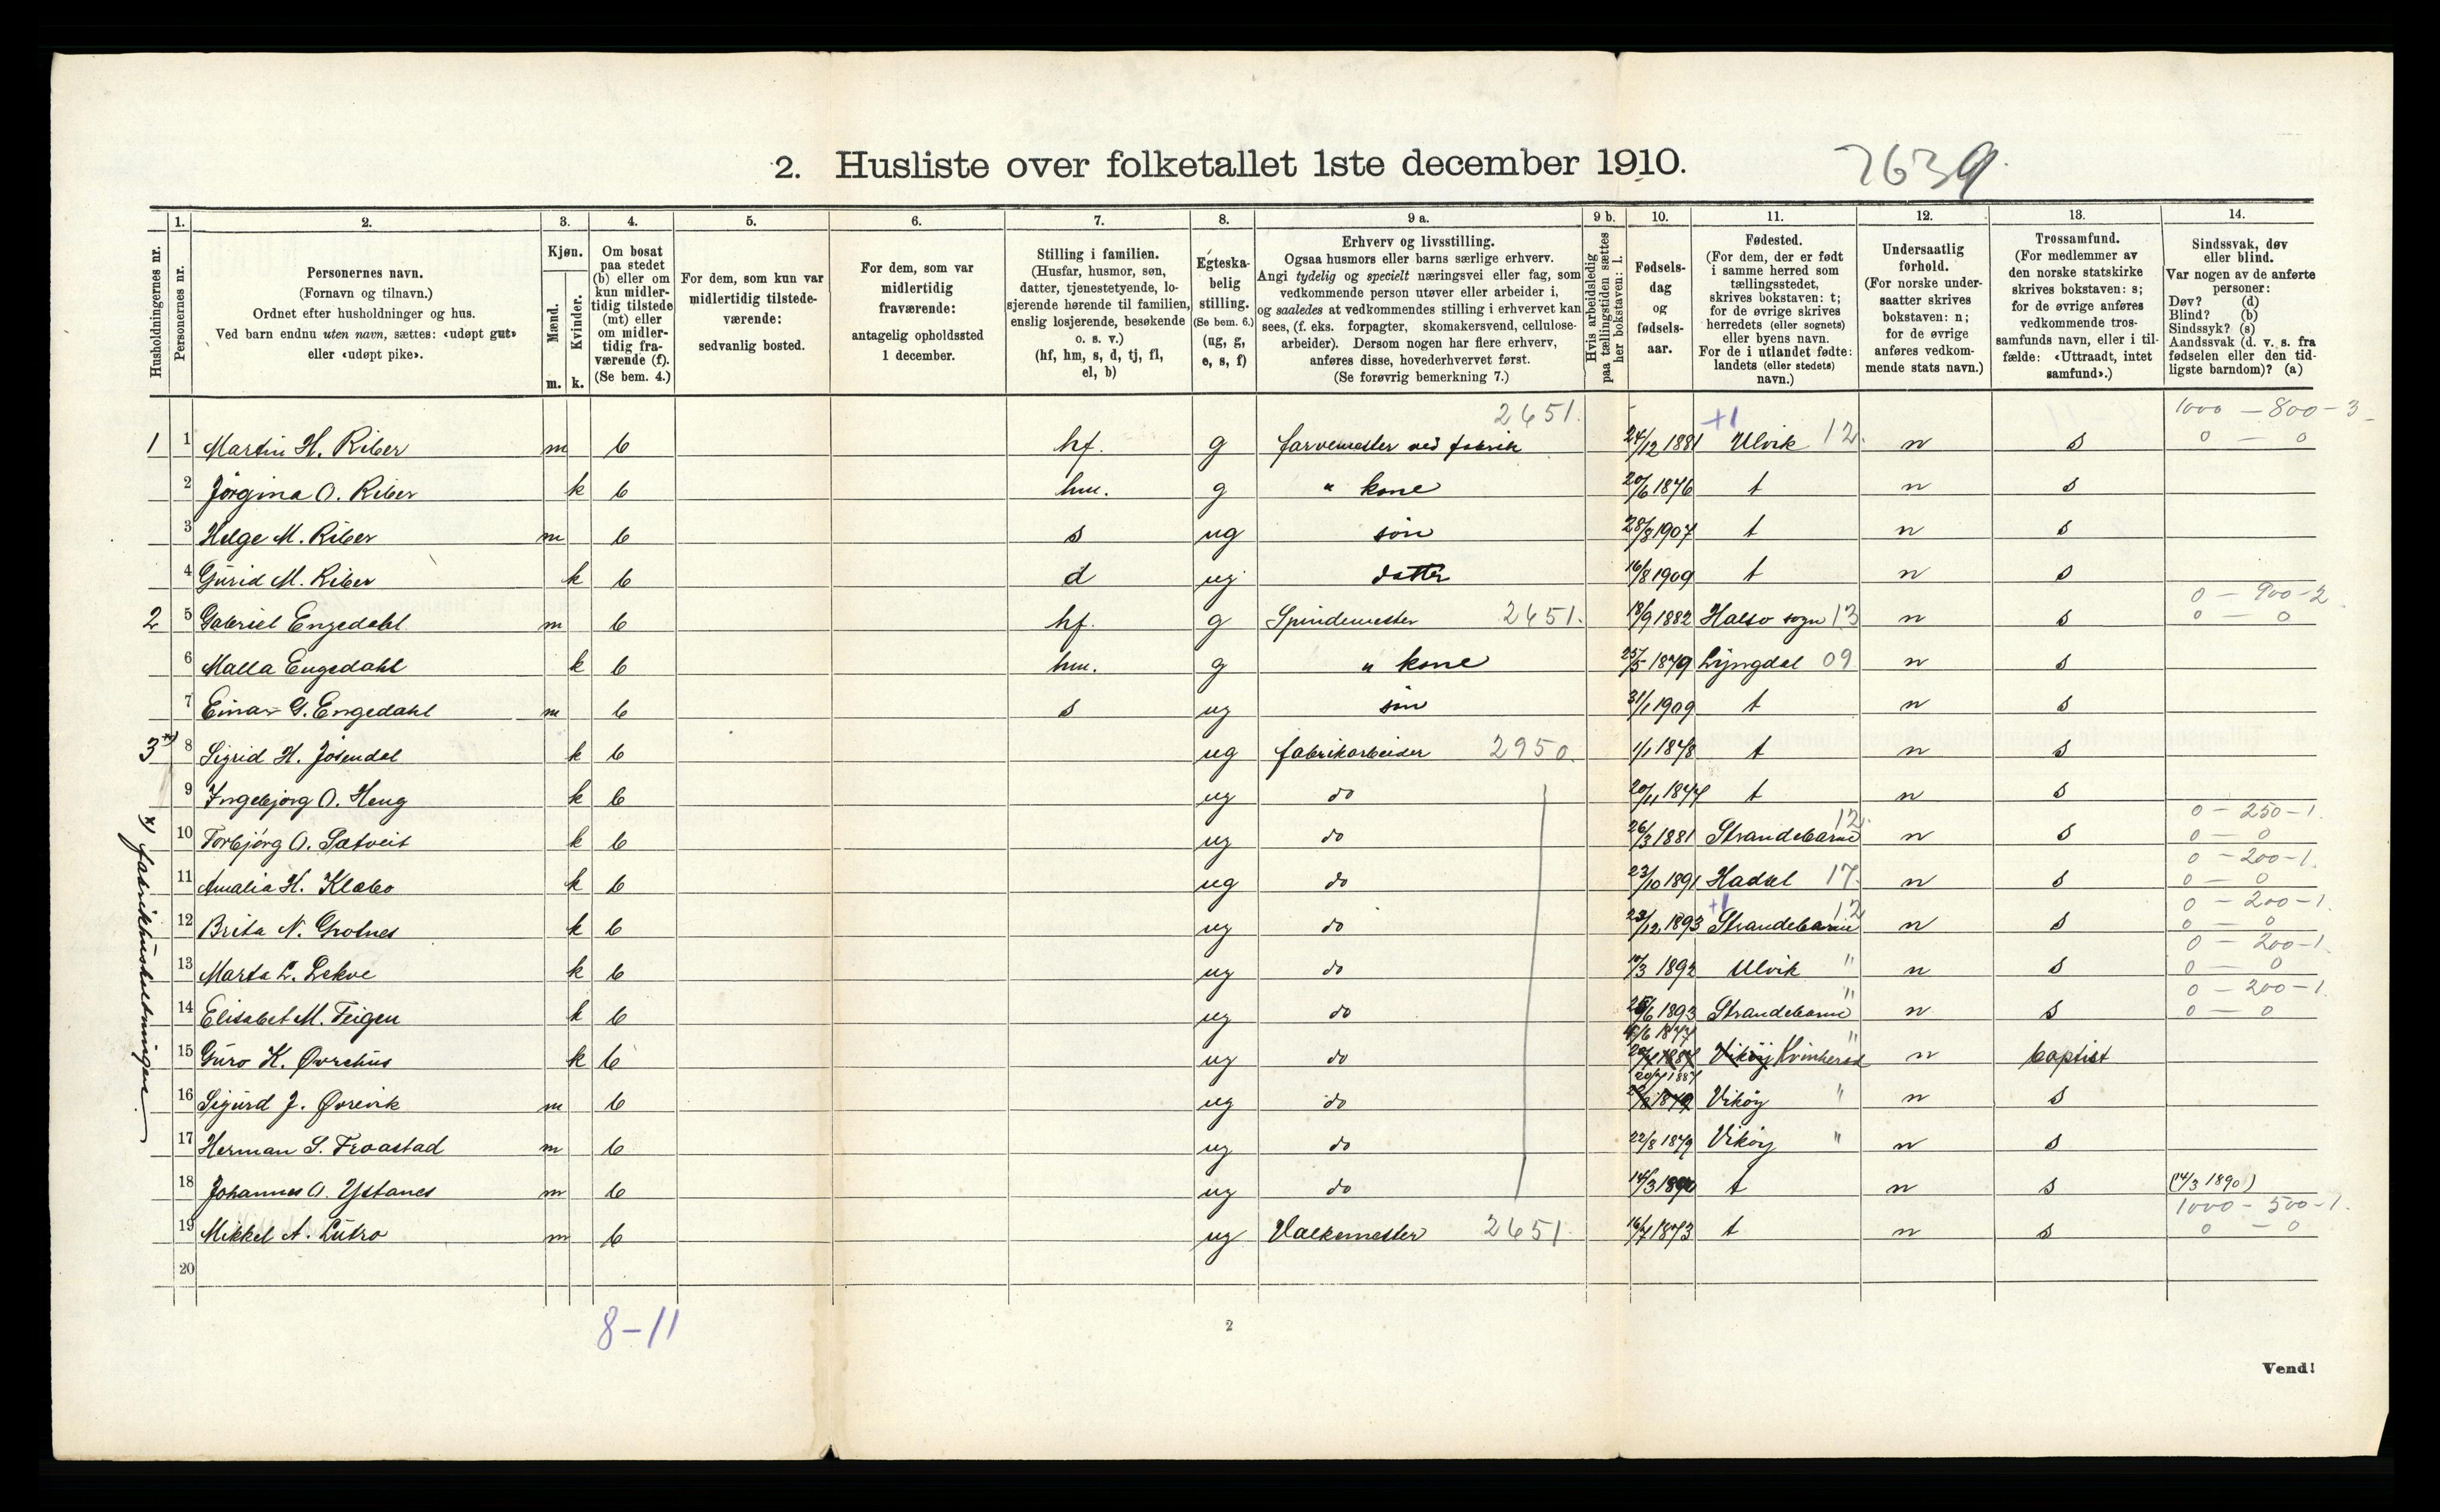 2. Husliste over folketallet 1ste december 1910.
7639.
Husholdningernes nr.
1.
Personernes nr.
2.
Personernes navn.
(Fornavn og tilnavn.)
Ordnet efter husholdninger og hus.
Ved barn endnu uten navn, sættes: «udøpt gut»
eller «udøpt pike».
3.
Kjøn.
Mænd.
Kvinder.
m. k.
4.
Om bosat
paa stedet
(b) eller om
kun midler-
tidig tilstede
(mt) eller
om midler-
tidig fra-
værende (f).
(Se bem. 4.)
5.
For dem, som kun var
midlertidig tilstede-
værende:
sedvanlig bosted.
6.
For dem, som var
midlertidig
fraværende:
antagelig opholdssted
1 december.
7.
Stilling i familien.
(Husfar, husmor, søn,
datter, tjenestetyende, lo-
sjerende hørende til familien,
enslig losjerende, besøkende
o. s. v.)
(hf, hm, s, d, tj, fl,
el, b)
8.
Egteska-
belig
stilling.
(Se bem. 6.)
(ug, g,
e, s, f)
9 a.
Erhverv og livsstilling.
Ogsaa husmors eller barns særlige erhverv.
Angi tydelig og specielt næringsvei eller fag, som
vedkommende person utøver eller arbeider i,
og saaledes at vedkommendes stilling i erhvervet kan
sees, (f. eks. forpagter, skomakersvend, cellulose-
arbeider). Dersom nogen har flere erhverv,
anføres disse, hovederhvervet først.
(Se forøvrig bemerkning 7.)
9 b.
Hvis arbeidsledig
paa tællingstiden sættes
her bokstaven: l.
10.
Fødsels-
dag
og
fødsels-
aar.
11.
Fødested.
(For dem, der er født
i samme herred som
tællingsstedet,
skrives bokstaven: t;
for de øvrige skrives
herredets (eller sognets)
eller byens navn.
For de i utlandet fødte:
landets (eller stedets)
navn.)
12.
Undersaatlig
forhold.
(For norske under-
saatter skrives
bokstaven: n;
for de øvrige
anføres vedkom-
mende stats navn.)
13.
Trossamfund.
(For medlemmer av
den norske statskirke
skrives bokstaven: s;
for de øvrige anføres
vedkommende tros-
samfunds navn, eller i til-
fælde: «Uttraadt, intet
samfund».)
14.
Sindssvak, døv
eller blind.
Var nogen av de anførte
personer:
Døv? (d)
Blind? (b)
Sindssyk? (s)
Aandssvak (d. v. s. fra
fødselen eller den tid-
ligste barndom)? (a)
2651. +1 1000 – 800 – 3
1 1 Martin H. Riber m b hf. g farvemester ved fabrik 24/12 1881 Ulvik 12. n s 0 – 0
2 Jørgina O. Riber k b hm. g " kone 20/6 1876 t n s
3 Helge M. Riber m b s ug søn 28/8 1907 t n s
4 Gurid M. Riber k b d ug datter 16/8 1909 t n s
0 – 900 – 2
2 5 Gabriel Engedahl m b hf. g Spindemester 2651. 18/9 1882 Halsø sogn 13 n s 0 – 0
6 Malla Engedahl k b hm. g " kone 25/5 1879 Lyngdal 09 n s
7 Einar G. Engedahl m b s ug søn 31/1 1909 t n s
3 x) 8 Sigrid H. Jösendal k b ug fabrikarbeider 2950. 1/1 1878 t n s
9 Ingebjørg O. Heng k b ug do 20/11 1877 t n s
12. 0 – 250 – 1.
10 Torbjørg O. Sætveit k b ug do 26/3 1881 Strandebarm n s 0 – 0
0 – 200 – 1.
11 Amalia H. Klæbo k b ug do 23/10 1891 Hadsel 17. n s 0 – 0
+1 12 0 – 200 – 1.
12 Brita N. Grotnes k b ug do 23/12 1893 Strandebarm n s 0 – 0
0 – 200 – 1.
13 Marta L. Lekve k b ug do /3 1892 Ulvik " n s 0 – 0
" 0 – 200 – 1.
14 Elisabet M. Teigen k b ug do /6 1893 Strandebarm n s 0 – 0
/6 1877 "
15 Guro K. Øvrehus k b ug do Vikøy Kvinherad n baptist
20/7 1887
16 Sigurd J. Øvrevik m b ug do Vikøy " n s
17 Herman S. Traastad m b ug do 22/8 1879 Vikøy " n s
18 Johannes O. Ystanes m b ug do 14/3 1890 t n s (14/3 1890)
1000 – 500 – 1.
19 Mikkel A. Lutro m b ug Valkemester 2651. 16/7 1873 t n s 0 – 0
20
x) fabrikhusholdningen.
8 – 11
2
Vend!